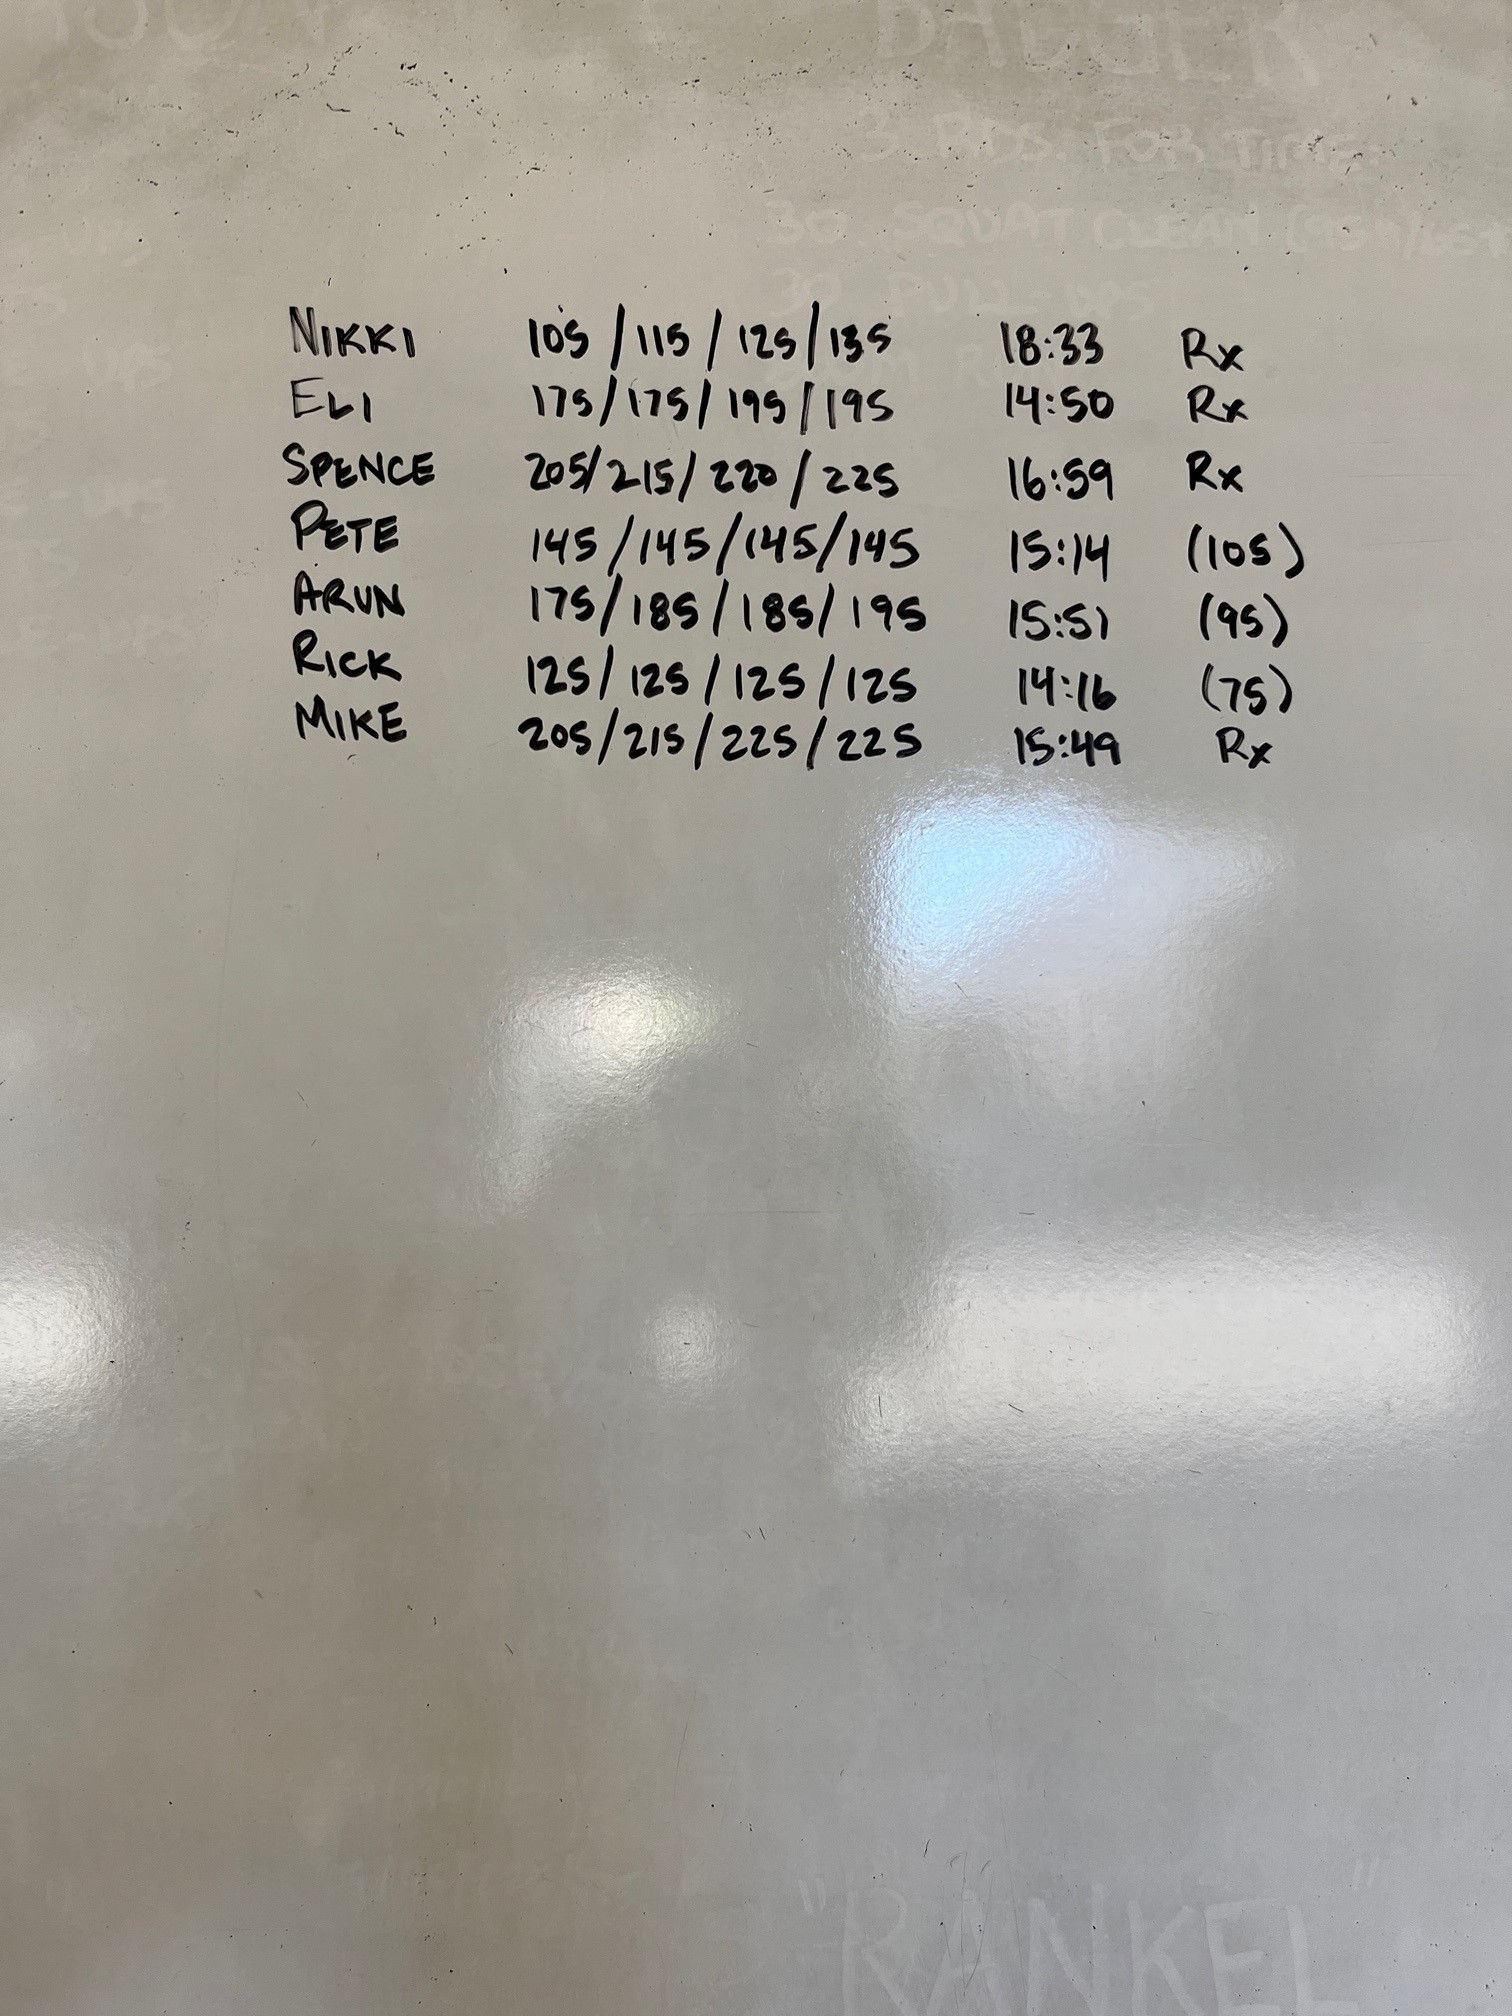 BADGER
3 RDS. FOR TIME:
30 SQUAT CLEAN (95#/65#
30 PULL UPS
NIKKI 105 / 115 / 125 / 135 18:33 Rx
ELI 175 / 175 / 195 / 195 14:50 Rx
SPENCE 205 / 215 / 220 / 225 16:59 Rx
PETE 145 / 145 / 145 / 145 15:14 (105)
ARUN 175 / 185 / 185 / 195 15:51 (95)
RICK 125 / 125 / 125 / 125 14:16 (75)
MIKE 205 / 215 / 225 / 225 15:49 Rx
"RANKEL"